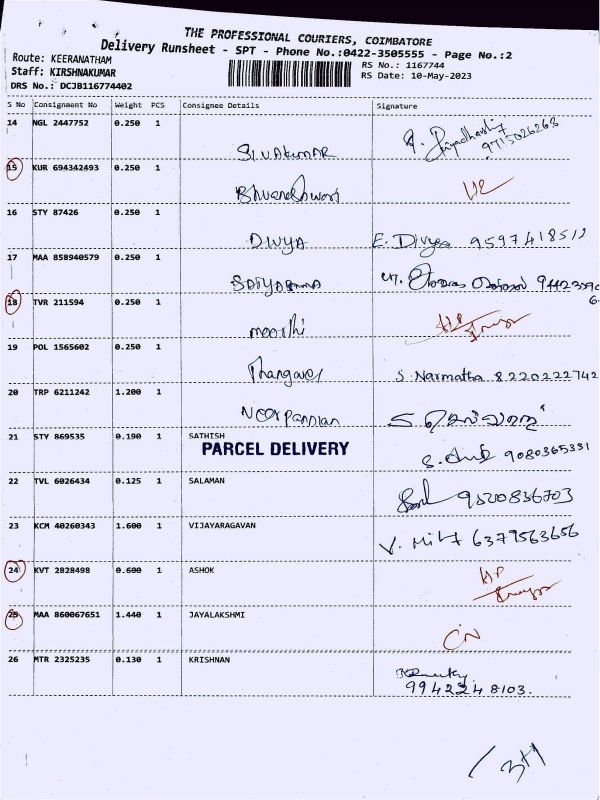 THE PROFESSIONAL COURIERS, COIMBATORE
Delivery Runsheet - SPT - Phone No.:0422-3505555 - Page No.:2
Route: KEERANATHAM
Staff: KIRSHNAKUMAR
DRS No.: DCJB116774402
RS No.: 1167744
RS Date: 10-May-2023
S No Consignment No Weight PCS Consignee Details Signature
14 NGL 2447752 0.250 1 SIVAKUMAR 9715026268
15 KUR 694342493 0.250 1 Bhuvaneshwari
16 STY 87426 0.250 1 DIVYA E. Divya
17 MAA 858940579 0.250 1
18 TVR 211594 0.250 1 moorthi
19 POL 1565602 0.250 1 Thangavel S. Narmatha 8220222742
20 TRP 6211242 1.200 1
21 STY 869535 0.190 1 SATHISH 9080365331
PARCEL DELIVERY
22 TVL 6026434 0.125 1 SALAMAN 9520836703
23 KCM 40260343 1.600 1 VIJAYARAGAVAN 6379563656
24 KVT 2828498 0.600 1 ASHOK
25 MAA 860067651 1.440 1 JAYALAKSHMI
26 MTR 2325235 0.130 1 KRISHNAN 9942248103.